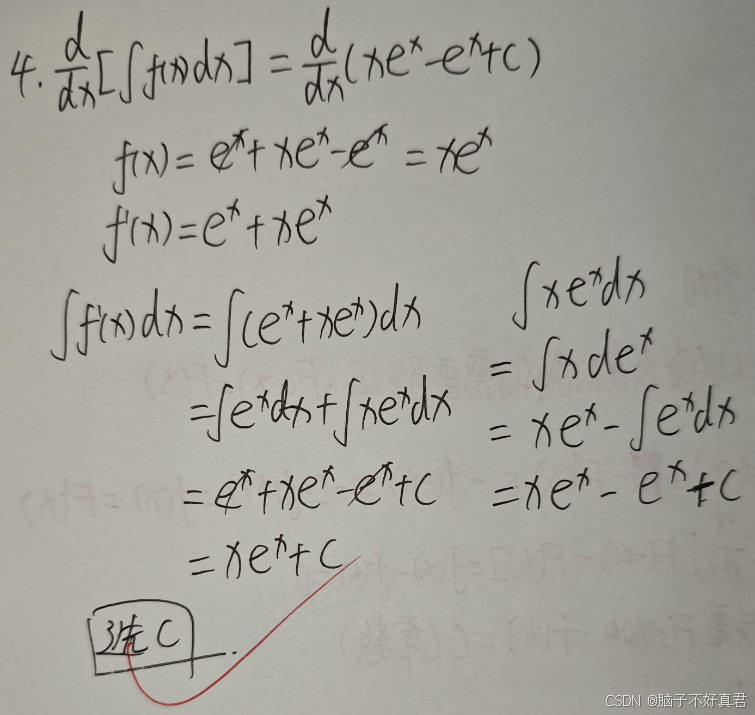 4. d/dx[∫f(x)dx] = d/dx(xeˣ-eˣ+C)
f(x) = eˣ+xeˣ-eˣ = xeˣ
f'(x) = eˣ+xeˣ
∫f'(x)dx = ∫(eˣ+xeˣ)dx
= ∫eˣdx+∫xeˣdx
= eˣ+xeˣ-eˣ+C
= xeˣ+C
∫xeˣdx
= ∫xdeˣ
= xeˣ-∫eˣdx
= xeˣ-eˣ+C
选C
CSDN @脑子不好真君